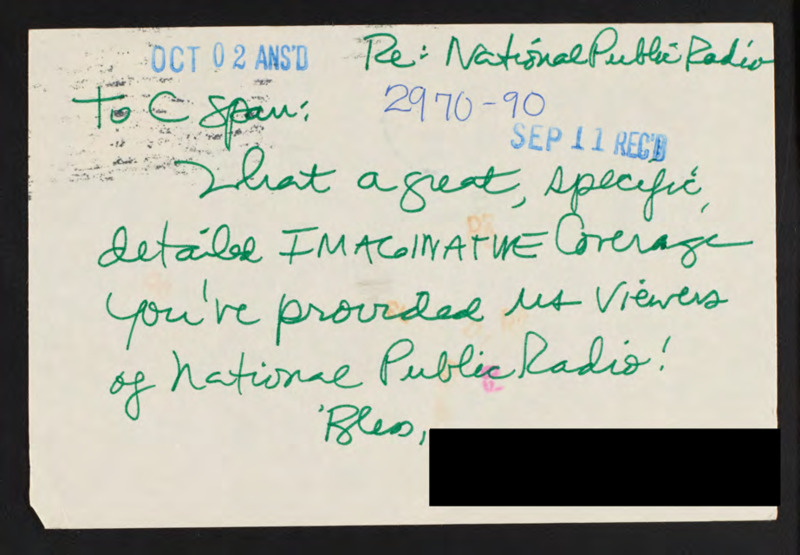 OCT 02 ANS'D
Re: National Public Radio
To C Span:
2970-90
SEP 11 REC'D
What a great, specific,
detailed IMAGINATIVE Coverage
you've provided us viewers
of National Public Radio!
'Bless,